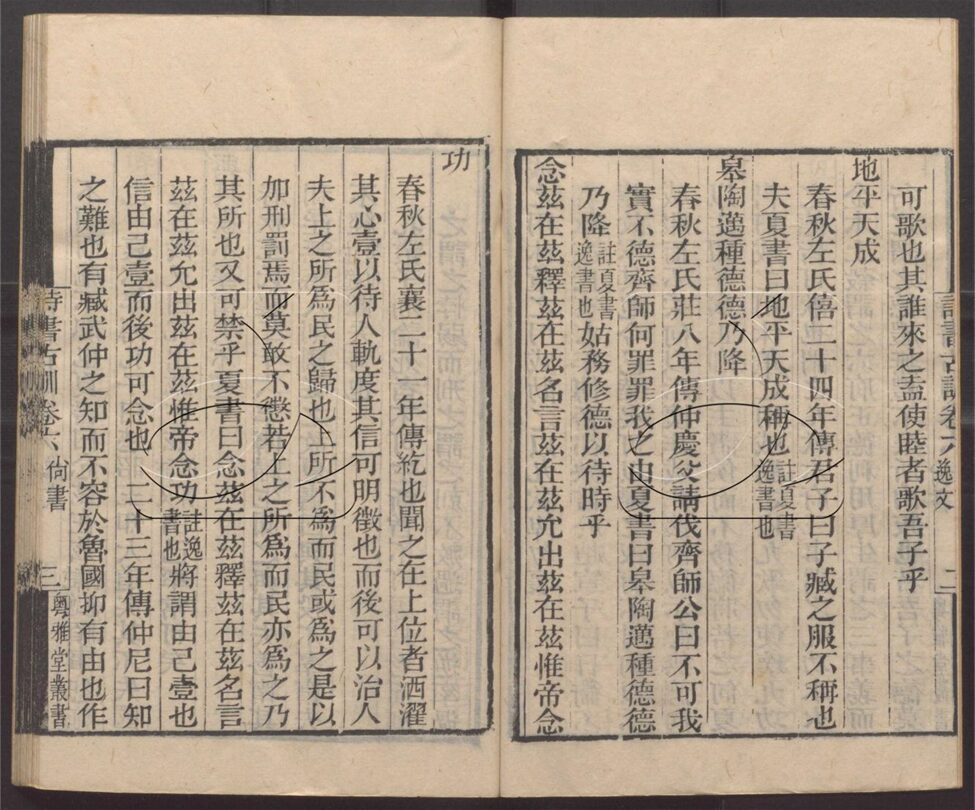 可歌也其誰來之盍使睦者歌吾子乎
地平天成
春秋左氏僖二十四年傳君子曰子臧之服不稱也
夫夏書曰地平天成稱也註夏書逸書也
皋陶邁種德德乃降
春秋左氏莊八年傳仲慶父請伐齊師公曰不可我
實不德齊師何罪罪我之由夏書曰皋陶邁種德德
乃降註夏書逸書也姑務修德以待時乎
念茲在茲釋茲在茲名言茲在茲允出茲在茲惟帝念
功
春秋左氏襄二十一年傳紇也聞之在上位者洒濯
其心壹以待人軌度其信可明徵也而後可以治人
夫上之所為民之歸也上所不為而民或為之是以
加刑罰焉而莫敢不懲若上之所為而民亦為之乃
其所也又可禁乎夏書曰念茲在茲釋茲在茲名言
茲在茲允出茲在茲惟帝念功註逸書也將謂由己壹也
信由己壹而後功可念也 二十三年傳仲尼曰知
之難也有臧武仲之知而不容於魯國抑有由也作
詩書古訓卷六 尙書 三 粵雅堂叢書